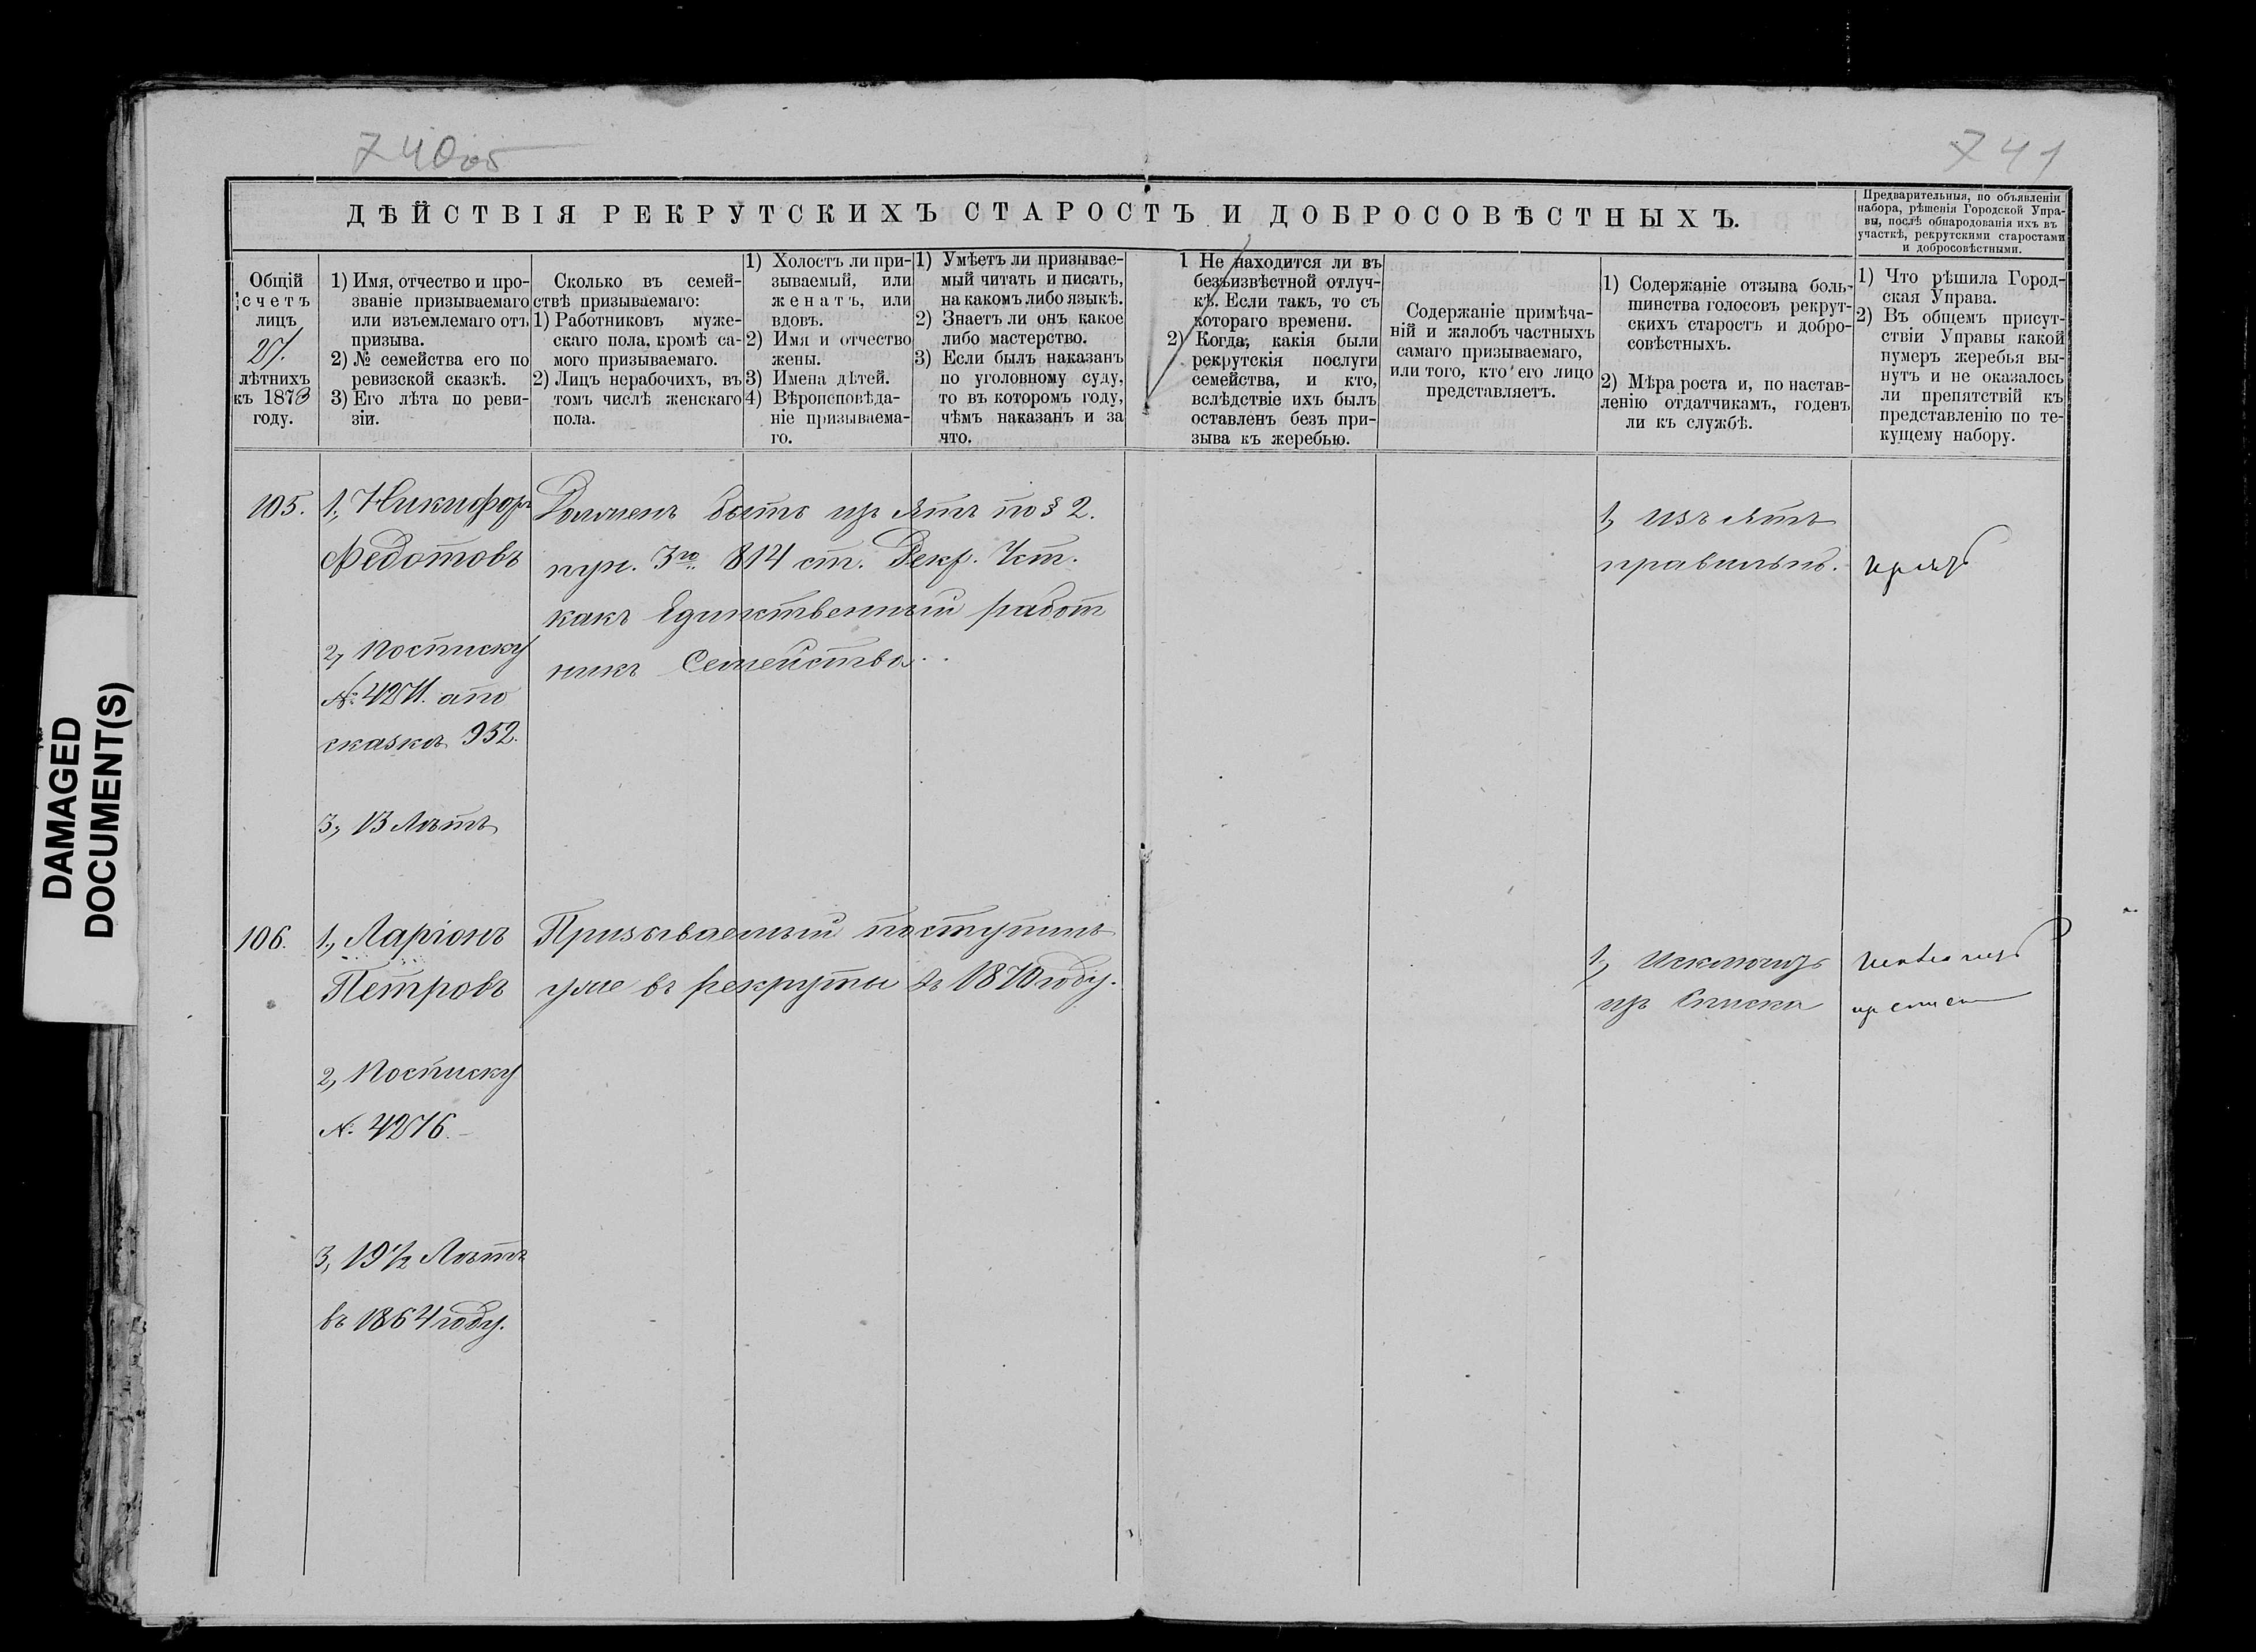 740об
741
ДѢЙСТВІЯ РЕКРУТСКИХЪ СТАРОСТЪ И ДОБРОСОВѢСТНЫХЪ.
Предварительныя, по объявленіи
набора, рѣшенія Городской Упра-
вы, послѣ обнародованія ихъ въ
участкѣ, рекрутскими старостами
и добросовѣстными.
Общій
счетъ
лицъ
27.
лѣтнихъ
къ 1873
году.
1) Имя, отчество и про-
званіе призываемаго
или изъемлемаго отъ
призыва.
2) № семейства его по
ревизской сказкѣ.
3) Его лѣта по реви-
зіи.
Сколько въ семей-
ствѣ призываемаго:
1) Работниковъ муже-
скаго пола, кромѣ са-
мого призываемаго.
2) Лицъ нерабочихъ, въ
томъ числѣ женскаго
пола.
1) Холостъ ли при-
зываемый, или
женатъ, или
вдовъ.
2) Имя и отчество
жены.
3) Имена дѣтей.
4) Вѣроисповѣда-
ніе призываема-
го.
1) Умѣетъ ли призывае-
мый читать и писать,
на какомъ либо языкѣ.
2) Знаетъ ли онъ какое
либо мастерство.
3) Если былъ наказанъ
по уголовному суду,
то въ которомъ году,
чѣмъ наказанъ и за
что.
1 Не находится ли въ
безъизвѣстной отлуч-
кѣ. Если такъ, то съ
котораго времени.
2) Когда, какія были
рекрутскія послуги
семейства, и кто,
вслѣдствіе ихъ былъ
оставленъ безъ при-
зыва къ жеребью.
Содержаніе примѣча-
ній и жалобъ частныхъ
самаго призываемаго,
или того, кто его лицо
представляетъ.
1) Содержаніе отзыва боль-
шинства голосовъ рекрут-
скихъ старостъ и добро-
совѣстныхъ.
2) Мѣра роста и, по настав-
ленію отдатчикамъ, годенъ
ли къ службѣ.
1) Что рѣшила Город-
ская Управа.
2) Въ общемъ присут-
ствіи Управы какой
нумеръ жеребья вы-
нутъ и не оказалось
ли препятствій къ
представленію по те-
кущему набору.
105.
1, Никифоръ
Федотовъ
2, Посписку
№ 4271. апо
сказкѣ 952.
3, 13 Лѣтъ
Долженъ быть изъ ятъ по § 2.
пун. 3го 814 ст. Рекр. Уст.
какъ Единственный работ
никъ Семейства.
1, изъ ятъ
правильно.
106.
1, Ларіонъ
Петровъ
2, Посписку
№ 4276.
3, 19 1/2 Лѣтъ
въ 1864 году.
Призываемый поступилъ
уже въ рекруты въ 1870 году.
1, Исключить
изъ Списка
DAMAGED
DOCUMENT(S)